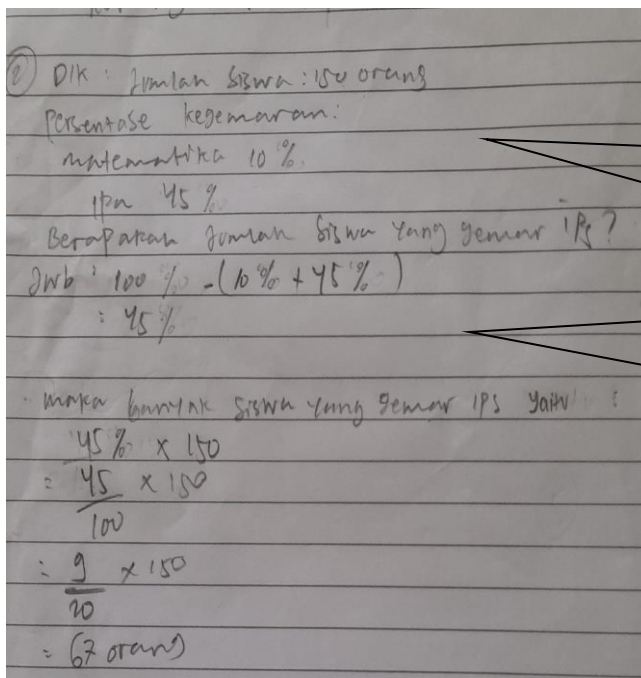 ② Dik : Jumlah siswa : 150 orang
Persentase kegemaran :
matematika 10 %
Ipa 45 %
Berapakah Jumlah siswa yang gemar IPS ?
Jwb : 100 % - ( 10 % + 45 % )
: 45 %
maka banyak siswa yang gemar IPS yaitu :
45 % x 150
= 45/100 x 150
= 9/20 x 150
= 67 orang